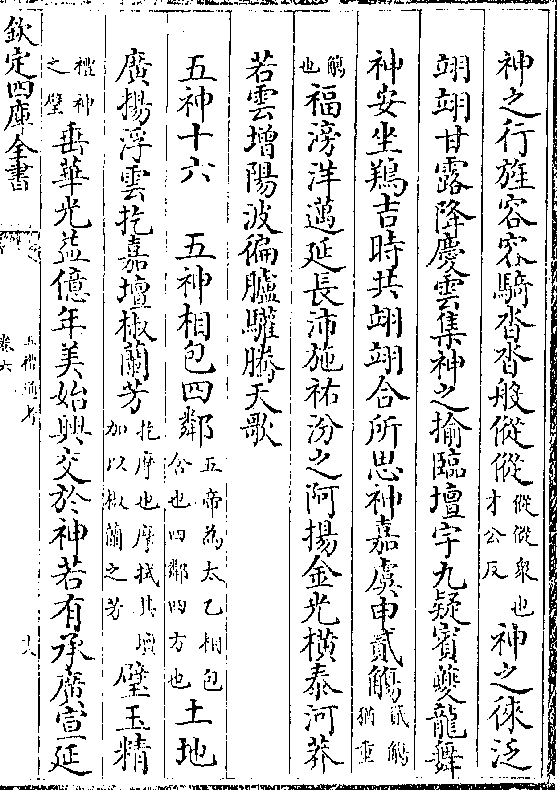 神之行旌容容騎沓沓般從從從從衆也才公反神之徠泛
翊翊甘露降慶雲集神之揄臨壇宇九疑賓夔龍舞
神安坐鶬吉時共翊翊合所思神嘉虞申貳觴貳觴猶重
觴也福滂洋邁延長沛施祐汾之阿揚金光橫泰河莽
若雲增陽波徧臚驩騰天歌
五神十六　五神相包四鄰五帝為太乙相包含也四鄰四方也土地
廣揚浮雲扢嘉壇椒蘭芳扢摩也摩拭其壇加以椒蘭之芳璧玉精
禮神之璧垂華光益億年美始興交於神若有承廣宣延
欽定四庫全書
五禮通考
卷六